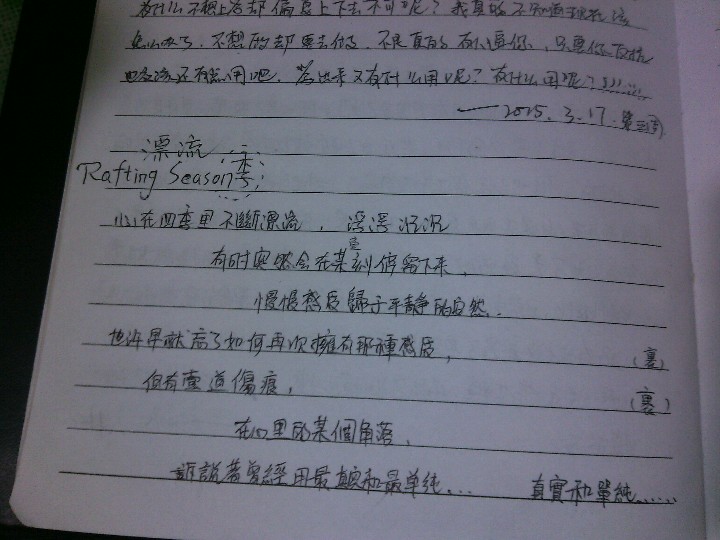 有什么不想上沿却偏思上下去不可呢？我真的不知道现在该
怎么办了，不想的却要去做，不是真的有心逼你，只要你
也应该还有点用吧，又有什么用呢？有什么用呢？……
——2015.3.17.
漂流季
Rafting Season
心在四季里不斷漂流，浮浮沉沉
有时突然会在某刻停留下来，
慢慢感受歸于平静的自然。
也许早就忘了如何再次擁有那種感受，
（裏）
但有壹道傷痕，
（裏）
在心里的某個角落，
訴說著曾經用最真和最单纯… 真實和單純……